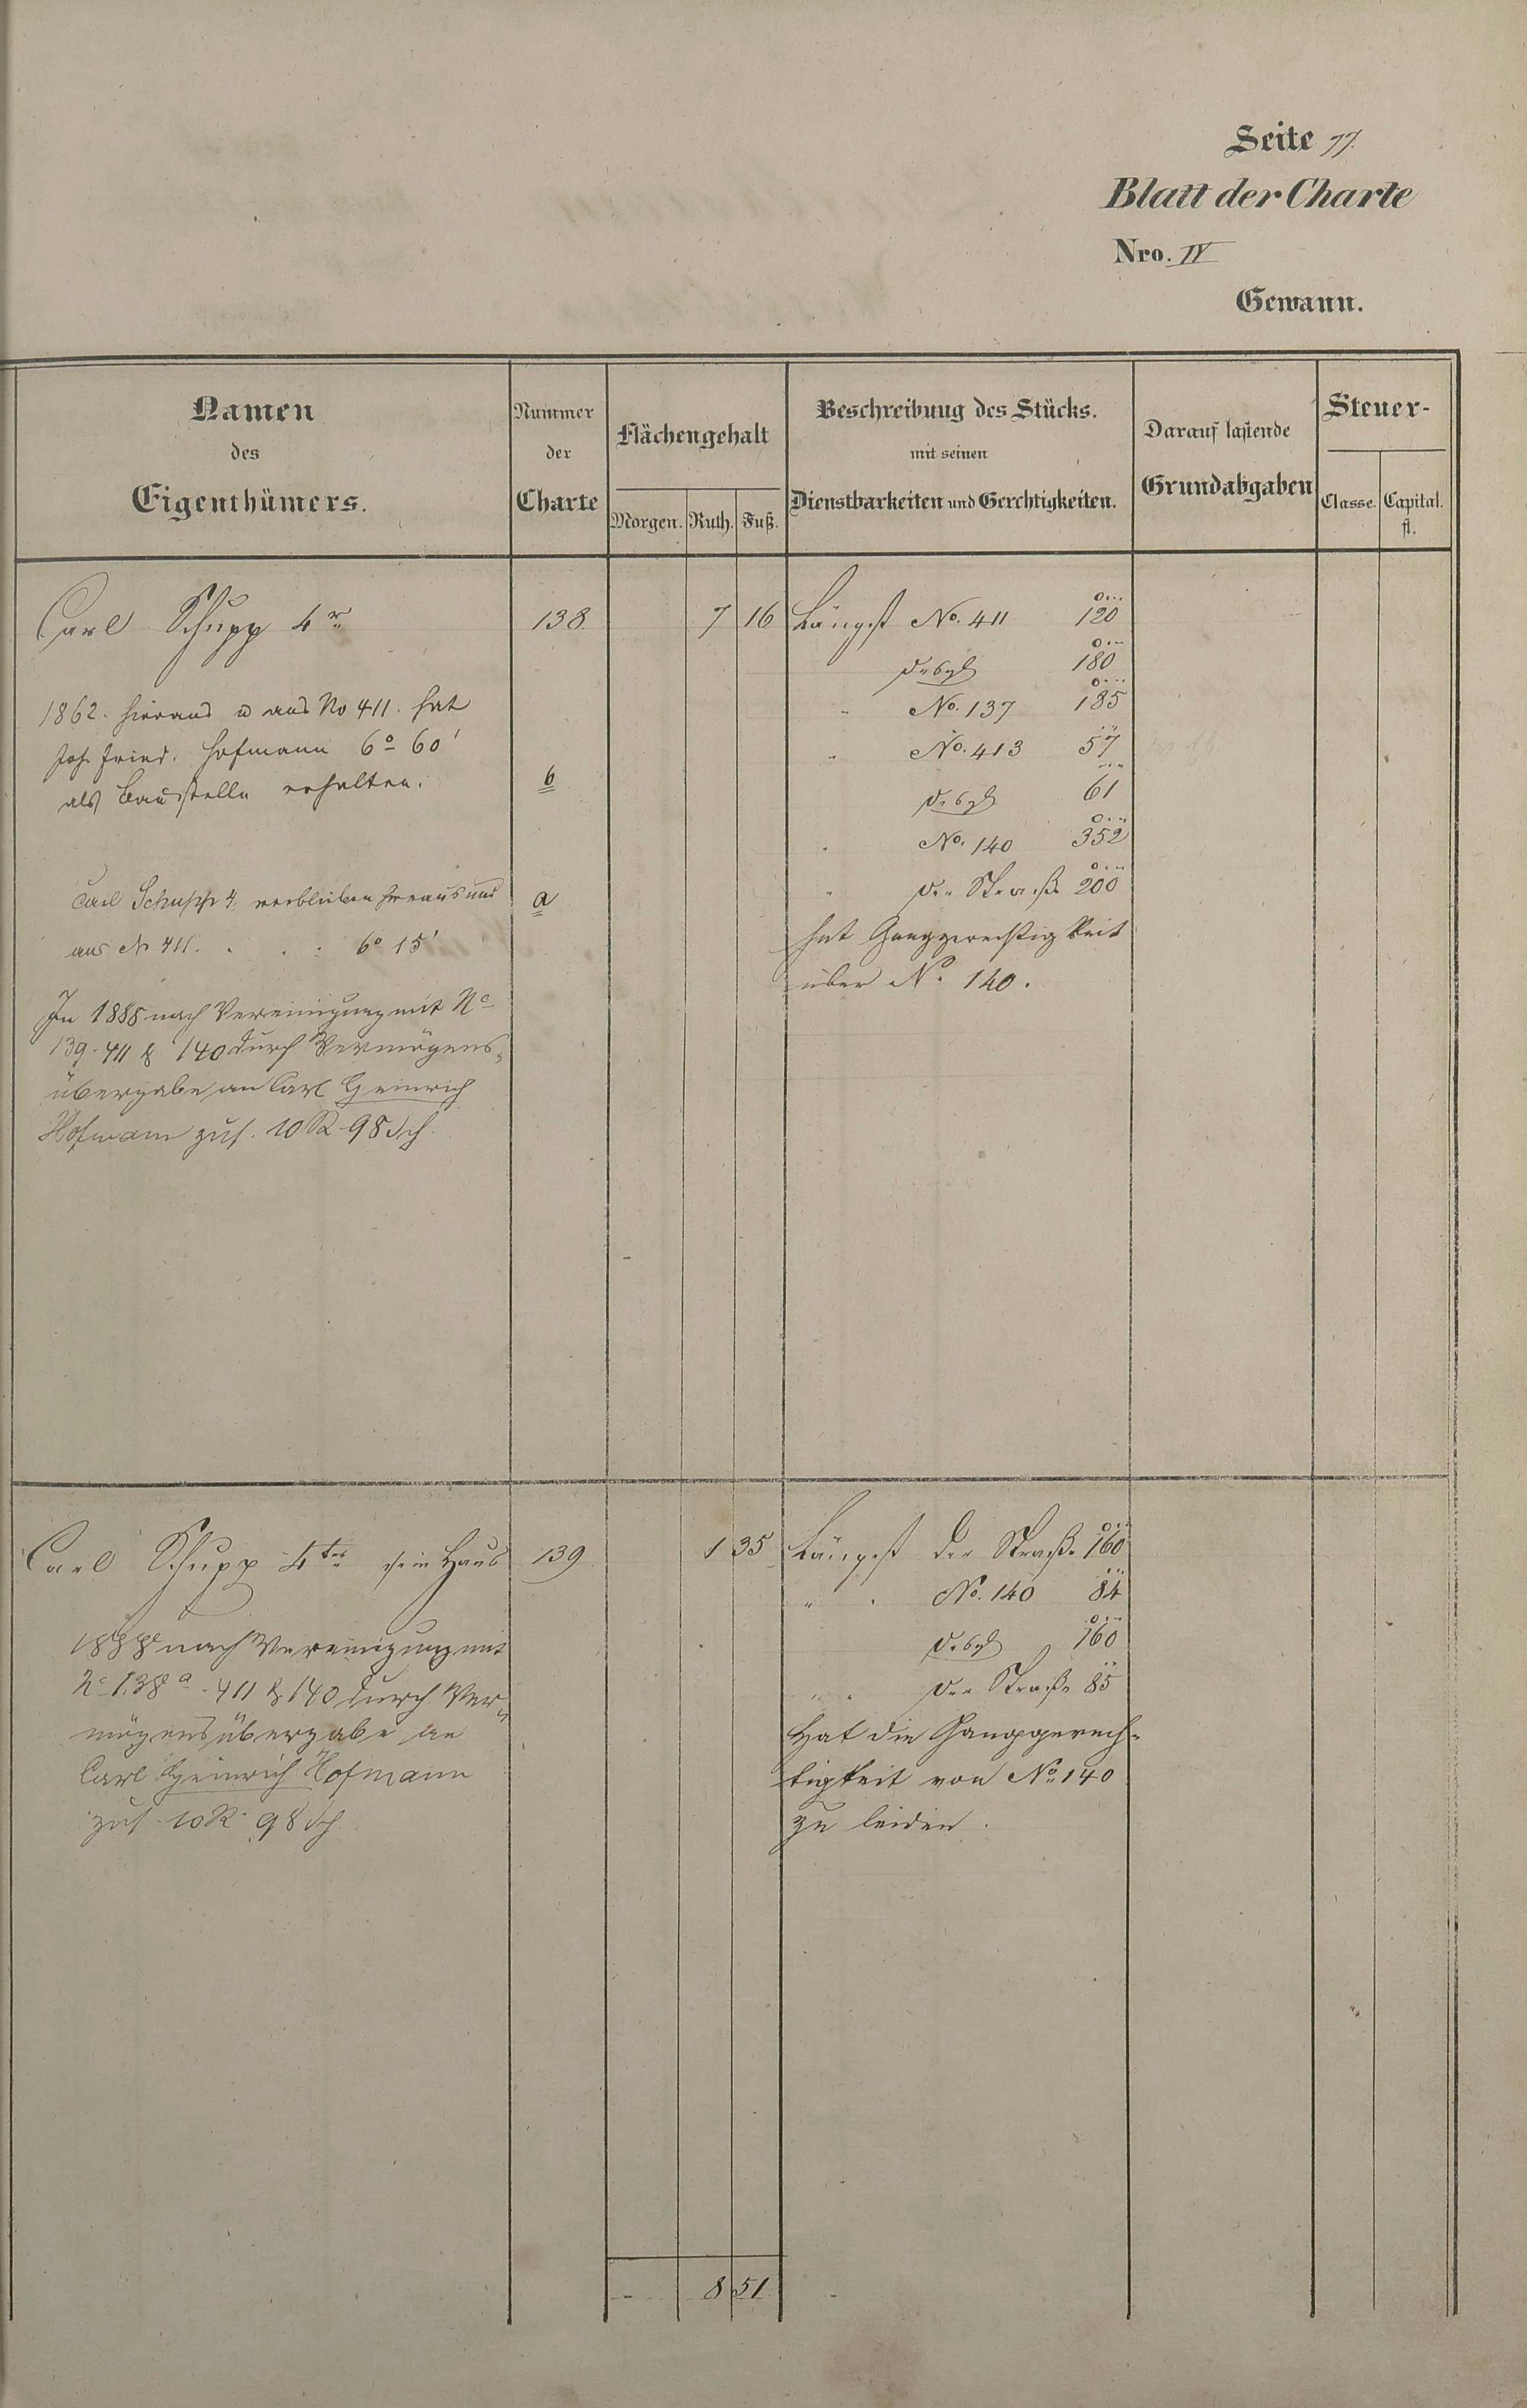 Seite 77.
Blatt der Charte
Nro. IV
Gewann.
Namen
des
Eigenthümers.
Nummer
der
Charte
Flächengehalt
Morgen. Ruth. Fuß.
Beschreibung des Stücks.
mit seinen
Dienstbarkeiten und Gerechtigkeiten.
Darauf lastende
Grundabgaben
Steuer-
Classe. Capital.
fl.
Carl Schupp 4r 138 7 16 Längst No. 411 120
desgl 180
" No. 137 185
" No. 413 57
desgl 61
" No. 140 352
" der Straße 200
hat Ganggerechtigkeit
über No. 140.
1862. hieraus u aus No 411. hat
Joh. Fried. Hofmann 6° 60'
als Baustelle erhalten. b
Carl Schupp 4. verblieben hieraus und a
aus No 411. . . . 6° 15'
In 1888 nach Vereinigung mit No
139. 411 & 140 durch Vermögens-
übergabe an Carl Heinrich
Hofmann zus. 10 R 98 Sch.
Carl Schupp 4ter sein Haus 139 1 35 Längst der Straße 160
" " No. 140 84
desgl 160
" " der Straße 85
Hat die Ganggerech-
tigkeit von No 140
zu leiden.
1888 nach Vereinigung mit
No 138a. 411 & 140 durch Ver-
mögensübergabe an
Carl Heinrich Hofmann
zus 10 R 98 Sch.
- 8 51